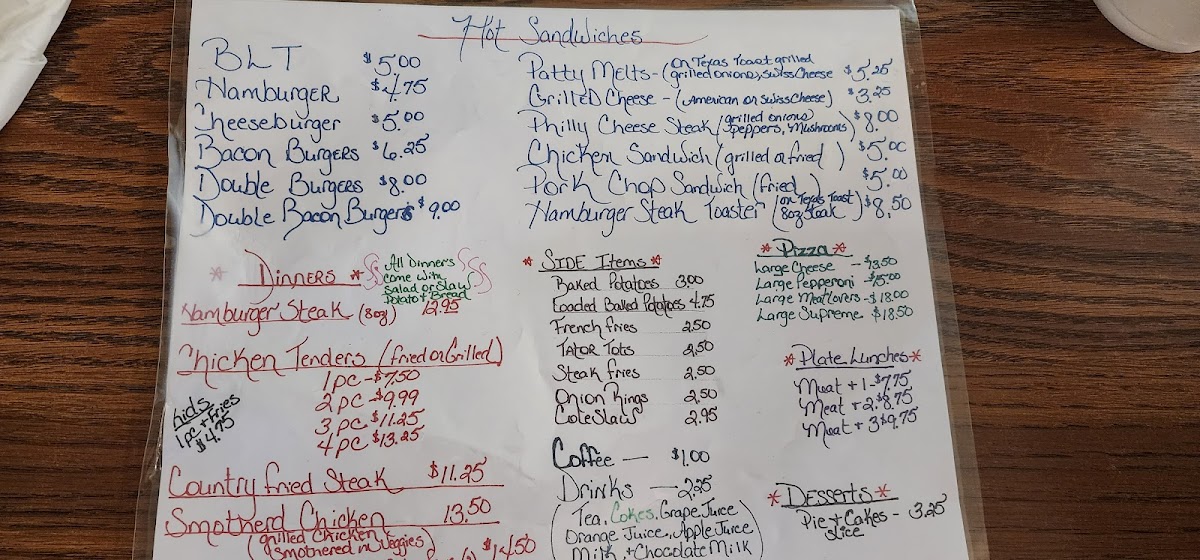 Hot Sandwiches
BLT $5.00
Hamburger $4.75
Cheeseburger $5.00
Bacon Burgers $6.25
Double Burgers $8.00
Double Bacon Burgers $9.00
Patty Melts - (on Texas Toast grilled
grilled onions, swiss cheese $5.25
Grilled Cheese - (American or Swiss Cheese) $3.25
Philly Cheese Steak (grilled onions
peppers, mushrooms) $8.00
Chicken Sandwich (grilled or fried) $5.00
Pork Chop Sandwich (fried) $5.00
Hamburger Steak Toaster (on Texas Toast
8oz Steak) $8.50
* Dinners *
All Dinners
come with
Salad or Slaw
Potato + Bread
Hamburger Steak (8oz) 12.95
Chicken Tenders (fried or Grilled)
1 pc - $7.50
2 pc - $9.99
3 pc $11.25
4 pc $13.25
Kids
1pc + Fries
$4.75
Country Fried Steak $11.25
Smotherd Chicken 13.50
(grilled chicken
smothered in veggies)
$14.50
* Side Items *
Baked Potatoes 3.00
Loaded Baked Potatoes 4.75
French fries 2.50
Tator Tots 2.50
Steak fries 2.50
Onion Rings 2.50
Cole Slaw 2.95
Coffee — $1.00
Drinks — 2.25
(Tea, Cokes, Grape Juice
Orange Juice, Apple Juice
Milk + Chocolate Milk
* Pizza *
Large Cheese - $13.50
Large Pepperoni - $15.00
Large Meatlovers - $18.00
Large Supreme $18.50
* Plate Lunches *
Meat + 1 - $7.75
Meat + 2. $8.75
Meat + 3 $9.75
* Desserts *
Pie + Cakes - 3.25
slice